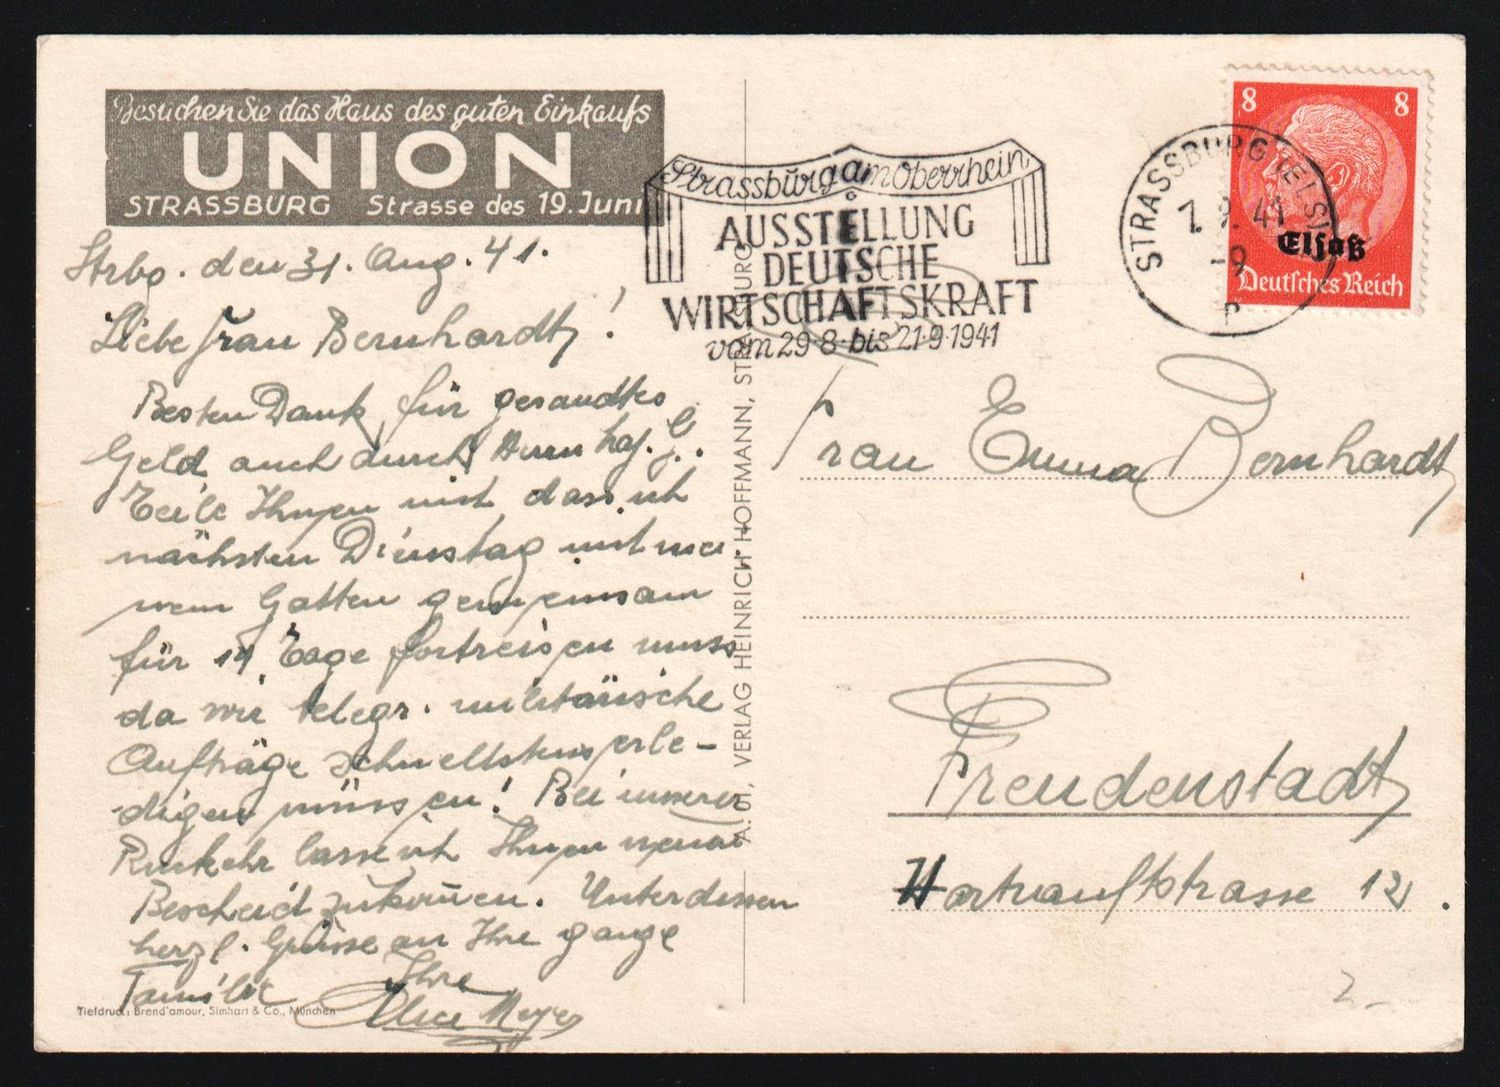 Besuchen Sie das Haus des guten Einkaufs
UNION
STRASSBURG Strasse des 19. Juni
Strbg. den 31. Aug. 41.
Liebe Frau Bernhardt!
Besten Dank für gesandtes
Geld auch durch Herrn
Teile Ihnen mit dass ich
nächsten Dienstag mit mei
nem Gatten gemeinsam
für 14 Tage fortreisen muss
da wir telegr. militärische
Aufträge schnellstens erle-
digen müssen! Bei unserer
Rückkehr lasse ich Ihnen
Bescheid zukommen. Unterdessen
herzl. Grüsse an Ihre ganze
Familie Ihre
Alice Meyer
Tiefdruck: Brend'amour, Simhart & Co., München
A. 61, VERLAG HEINRICH HOFFMANN, STRASSBURG
Strassburg am Oberrhein
AUSSTELLUNG
DEUTSCHE
WIRTSCHAFTSKRAFT
vom 29·8·bis 21·9·1941
STRASSBURG (ELS)
1. 9. 41
-9
8 8
Elsaß
Deutsches Reich
Frau Emma Bernhardt
Freudenstadt
Hartranftstrasse 12.
2.-